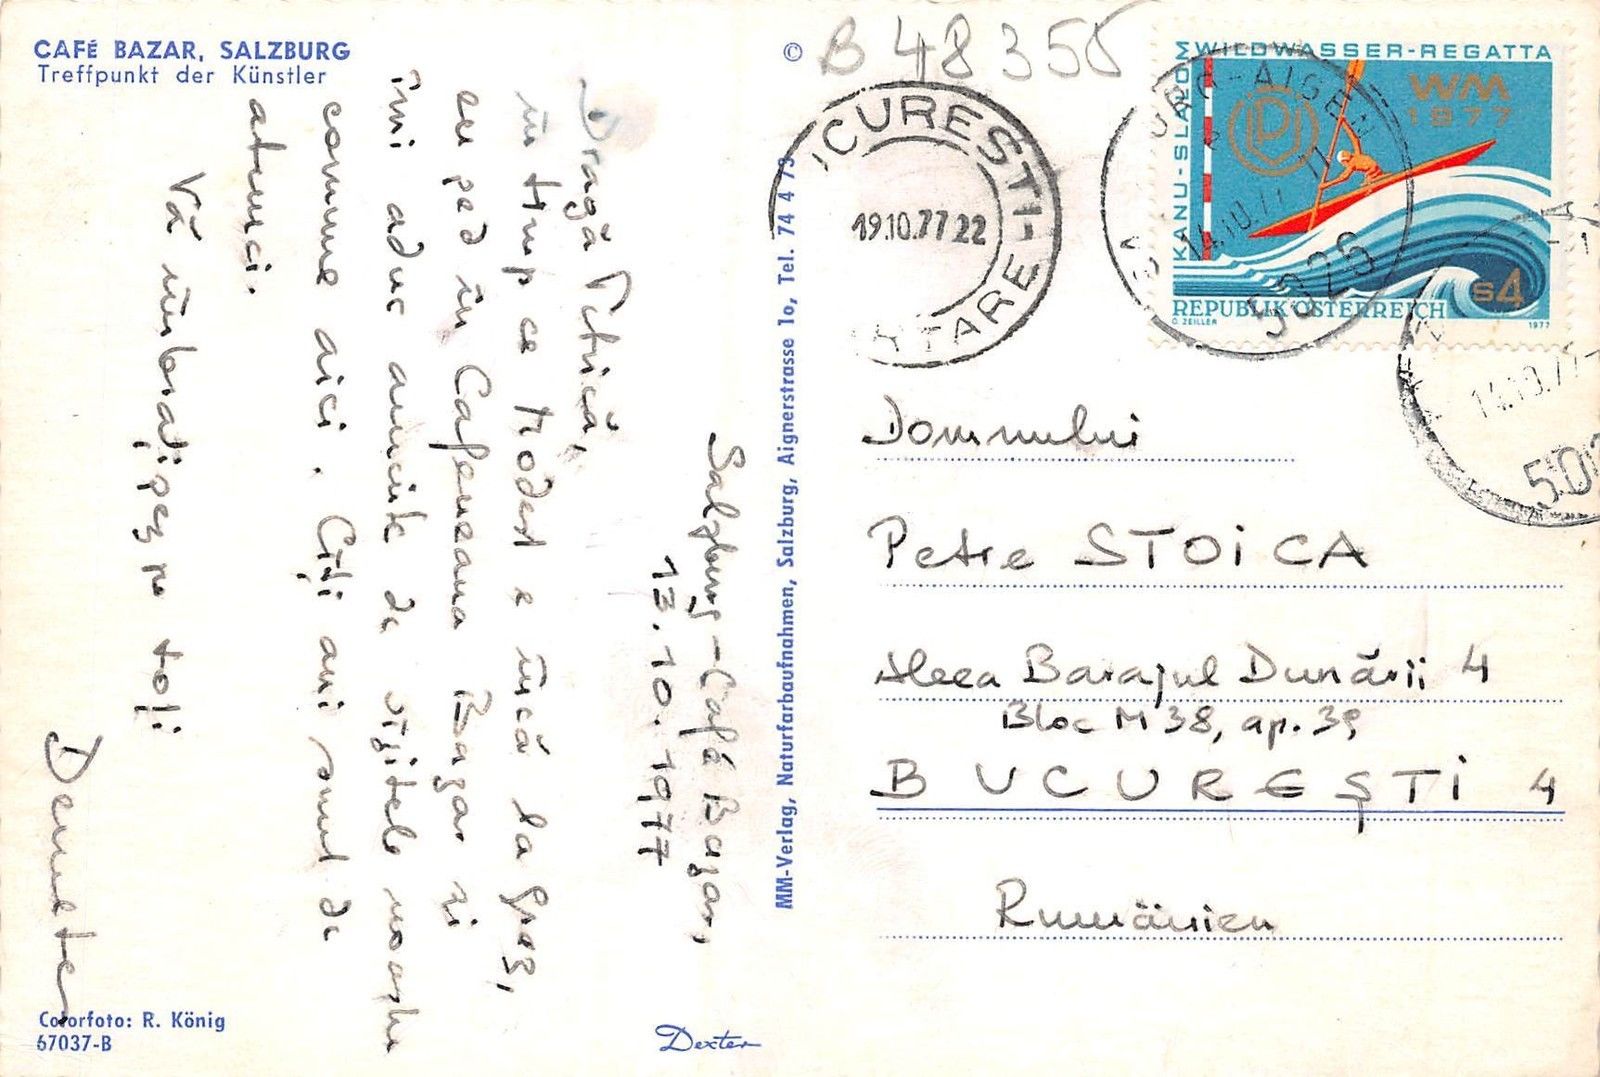 CAFÉ BAZAR, SALZBURG
Treffpunkt der Künstler
Salzburg-Café Bazar,
13.10.1977
Dragă Petrică,
în timp ce Modest e încă la Graz,
eu șed în Cafeneaua Bazar și
îmi aduc aminte de vizitele noastre
comune aici. Câți ani sunt de
atunci.
Vă îmbrățișez pe toți
Colorfoto: R. König
67037-B
Dexter
© MM-Verlag, Naturfarbaufnahmen, Salzburg, Aignerstrasse 1o, Tel. 74 4 73
B 48 355
UCUREȘTI-
CARTARE
19.10.77 22
KANU-SLALOM
WILDWASSER-REGATTA
WM
1977
s4
REPUBLIK ÖSTERREICH
O. ZEILLER
1977
SALZBURG-AIGEN
14.10.77
5026
14.10.77
502
Domnului
Petre STOICA
Aleea Barajul Dunării 4
Bloc M 38, ap. 39
BUCUREȘTI 4
Rumänien